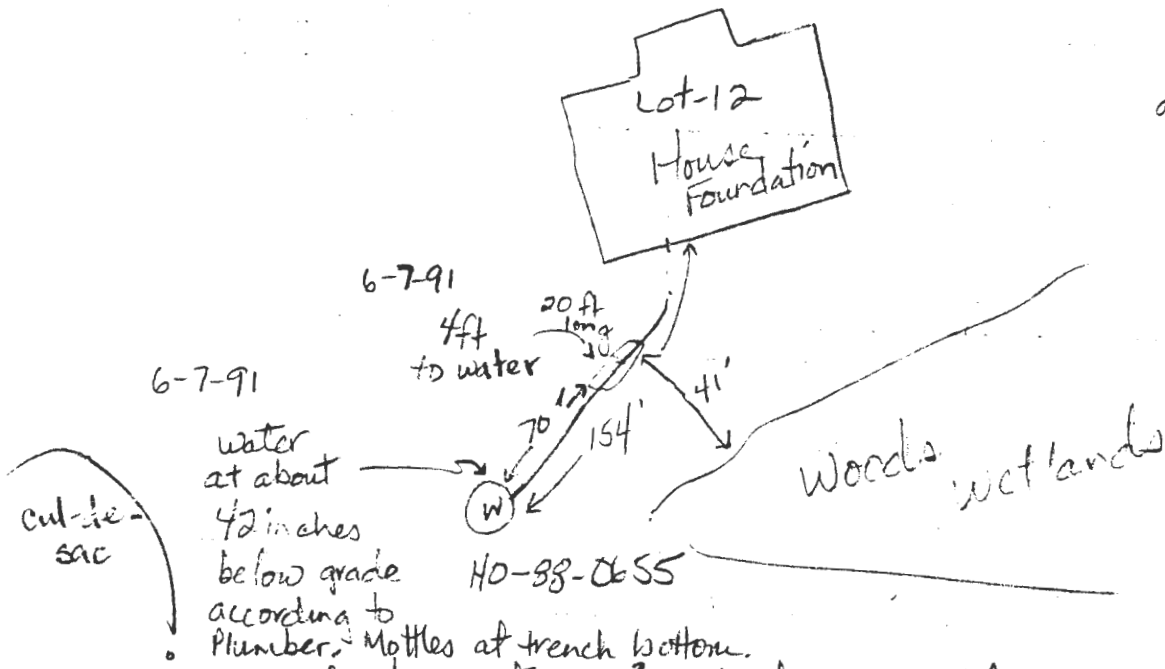 Lot-12
House
Foundation
6-7-91
4ft
to water
20 ft
long
6-7-91
water
at about
42 inches
below grade
according to
Plumber. Mottles at trench bottom.
70'
154'
41'
W
HO-88-0655
Woods
wetlands
cul-de-
sac